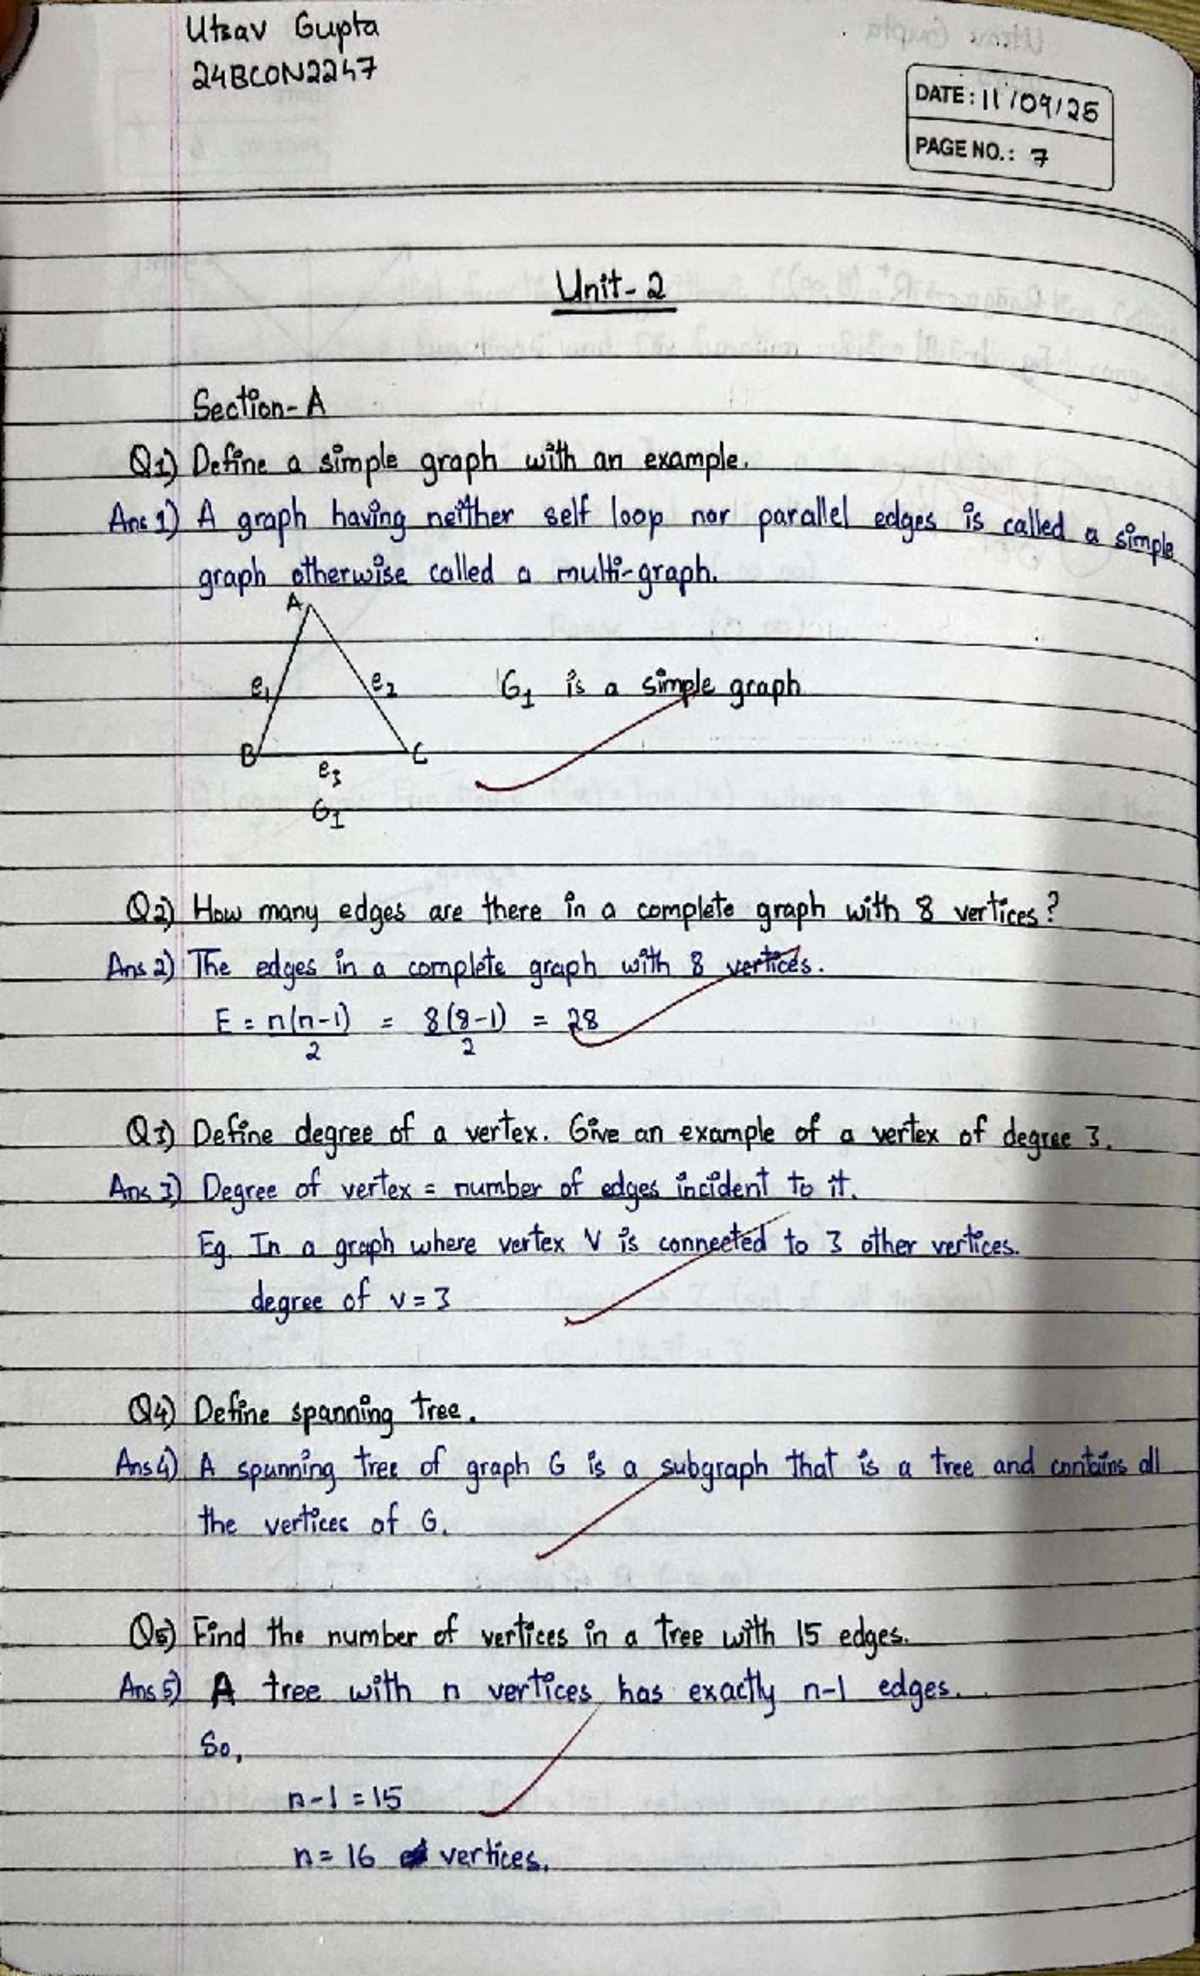 Utsav Gupta
24BCON2247
DATE: 11/09/25
PAGE NO.: 7
Unit-2
Section-A
Q1) Define a simple graph with an example.
Ans 1) A graph having neither self loop nor parallel edges is called a simple
graph otherwise called a multi-graph.
A
e1 e2 G1 is a simple graph
B C
e3
G1
Q2) How many edges are there in a complete graph with 8 vertices?
Ans 2) The edges in a complete graph with 8 vertices.
E = n(n-1)/2 = 8(8-1)/2 = 28
Q3) Define degree of a vertex. Give an example of a vertex of degree 3.
Ans 3) Degree of vertex = number of edges incident to it.
Eg. In a graph where vertex V is connected to 3 other vertices.
degree of v = 3
Q4) Define spanning tree.
Ans 4) A spanning tree of graph G is a subgraph that is a tree and contains all
the vertices of G.
Q5) Find the number of vertices in a tree with 15 edges.
Ans 5) A tree with n vertices has exactly n-1 edges.
So,
n-1 = 15
n = 16 vertices.